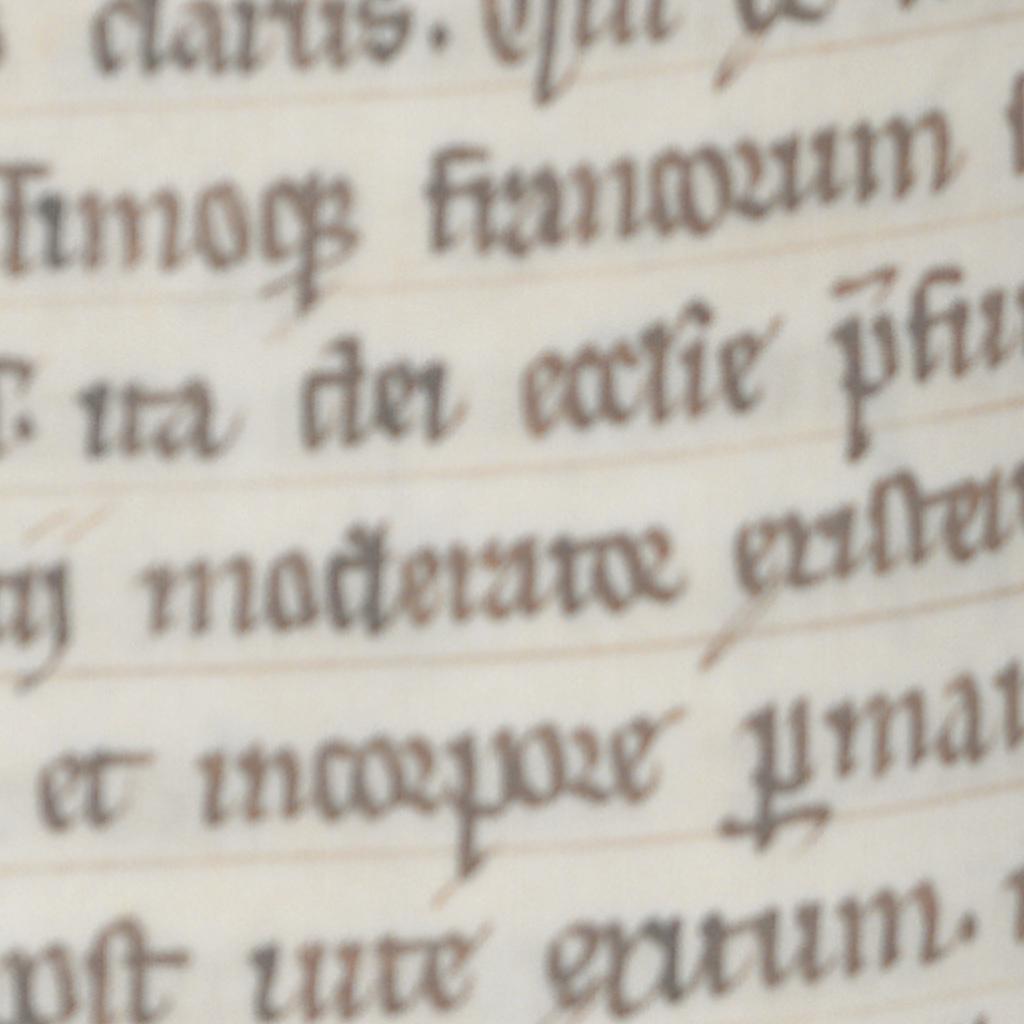 clarus. Qui
timoqꝫ francorum
ita dei ecclie p̄fu
ij moderatōe existen
et incorpore ꝑman
post uite exitum.